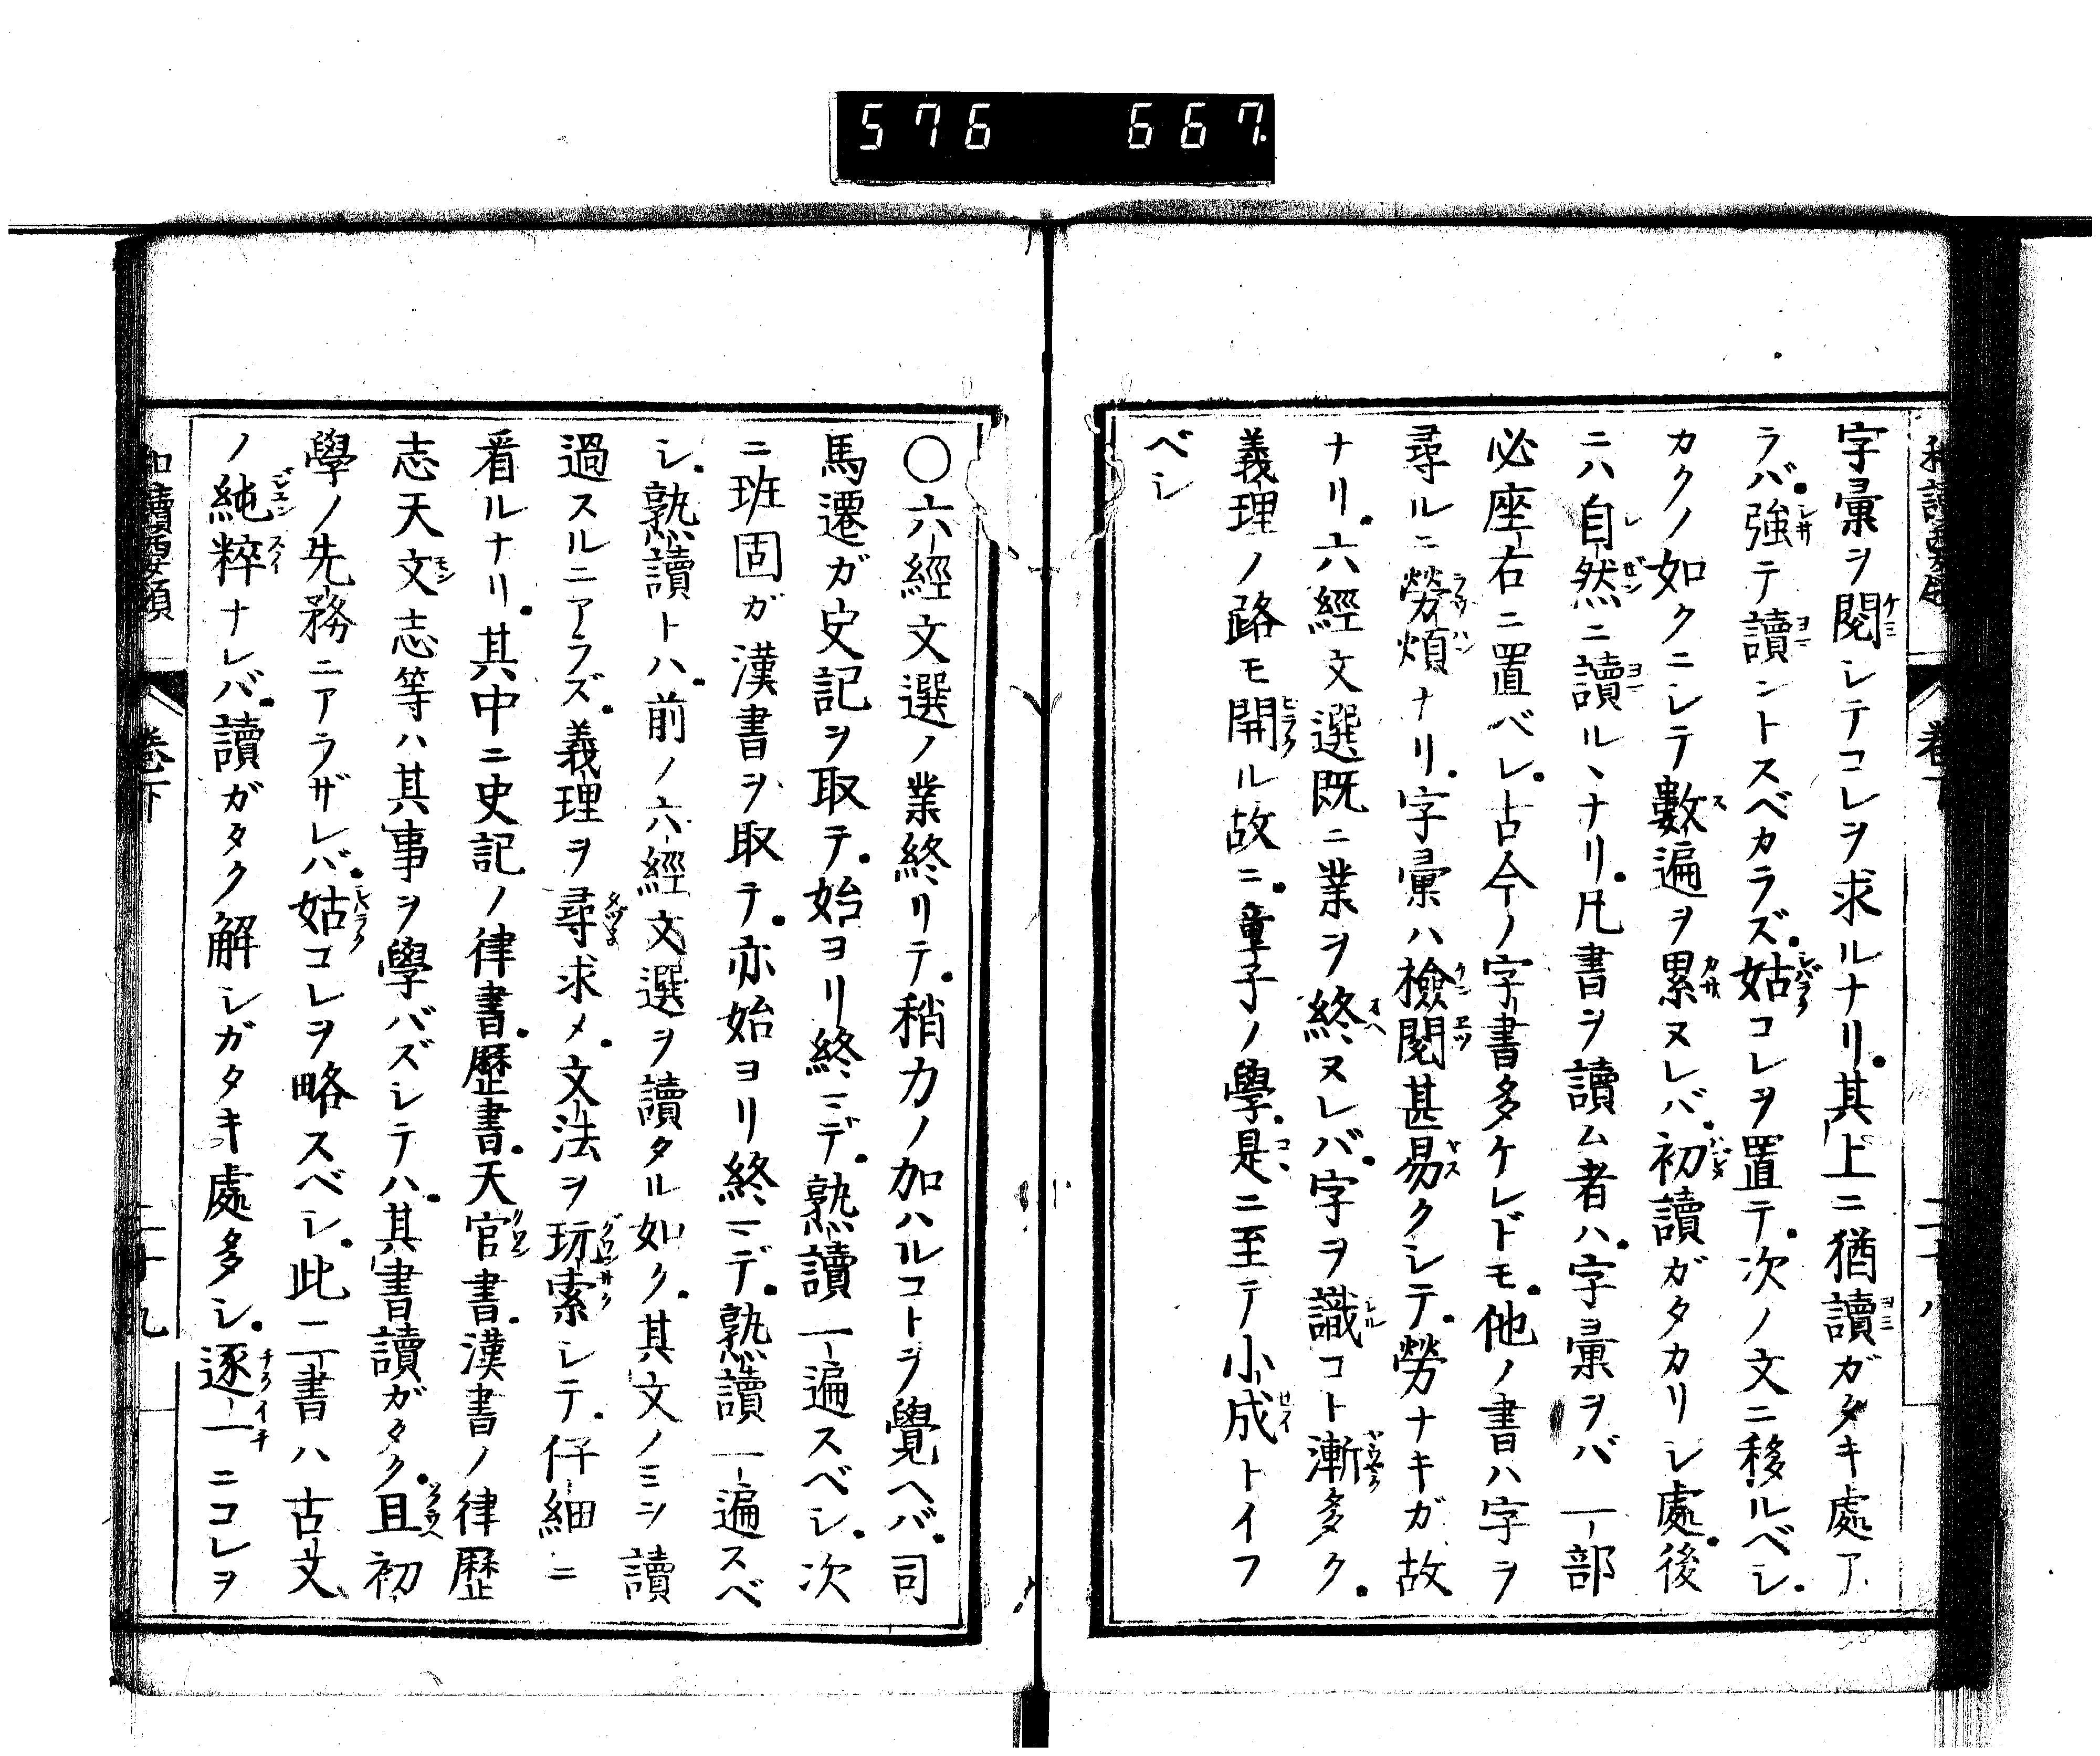 576 667.
字彙ヲ閲シテコレヲ求ルナリ其上ニ猶讀ガタキ處ア
ラバ強テ讀ントスベカラズ姑コレヲ置テ次ノ文ニ移ルベシ
カクノ如クニシテ數遍ヲ累ヌレバ初讀ガタカリシ處後
ニハ自然ニ讀ルヽナリ凡書ヲ讀ム者ハ字彙ヲバ一部
必座右ニ置ベシ古今ノ字書多ケレドモ他ノ書ハ字ヲ
尋ルニ勞煩ナリ字彙ハ檢閲甚易クシテ勞ナキガ故
ナリ六經文選既ニ業ヲ終ヌレバ字ヲ識コト漸多ク
義理ノ路モ開ル故ニ童子ノ學是ニ至テ小成トイフ
ベシ
〇六經文選ノ業終リテ稍力ノ加ハルコトヲ覺ヘバ司
馬遷ガ史記ヲ取テ始ヨリ終マデ熟讀一遍スベシ次
ニ班固ガ漢書ヲ取テ亦始ヨリ終マデ熟讀一遍スベ
シ熟讀トハ前ノ六經文選ヲ讀タル如ク其文ノミヲ讀
過スルニアラズ義理ヲ尋求メ文法ヲ玩索シテ仔細ニ
看ルナリ其中ニ史記ノ律書歴書天官書漢書ノ律歴
志天文志等ハ其事ヲ學バズシテハ其書讀ガタク且初
學ノ先務ニアラザレバ姑コレヲ略スベシ此二書ハ古文
ノ純粹ナレバ讀ガタク解シガタキ處多シ逐一ニコレヲ
卷下
二十九